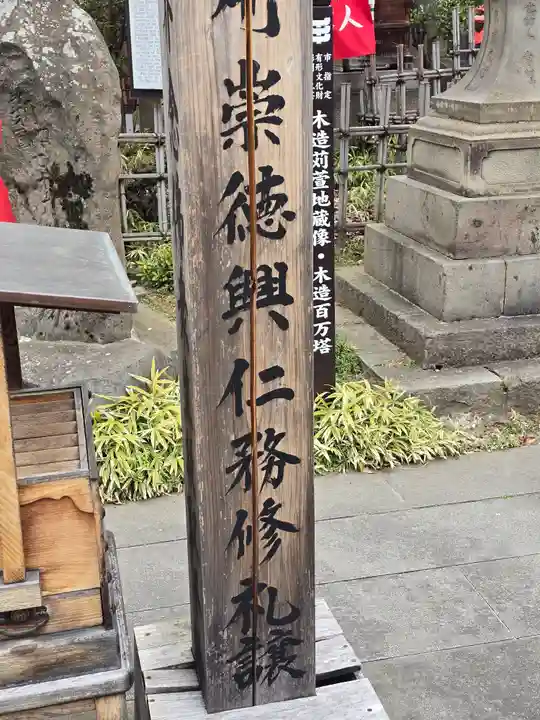 崇徳興仁務修礼譲
市指定
有形文化財
木造苅萱地蔵像・木造百万塔
人